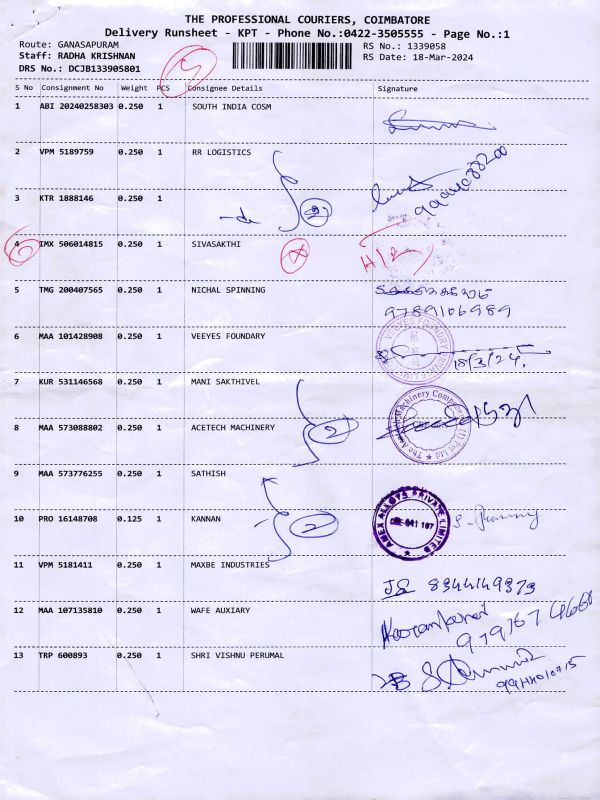 THE PROFESSIONAL COURIERS, COIMBATORE
Delivery Runsheet - KPT - Phone No.:0422-3505555 - Page No.:1
Route: GANASAPURAM
RS No.: 1339058
Staff: RADHA KRISHNAN
RS Date: 18-Mar-2024
DRS No.: DCJB133905801
S No Consignment No Weight PCS Consignee Details Signature
1 ABI 20240258303 0.250 1 SOUTH INDIA COSM
2 VPM 5189759 0.250 1 RR LOGISTICS
3 KTR 1888146 0.250 1
2
4 IMX 506014815 0.250 1 SIVASAKTHI
5 TMG 200407565 0.250 1 NICHAL SPINNING
9789106989
6 MAA 101428908 0.250 1 VEEYES FOUNDARY
VEEYES FOUNDRY PRIVATE LIMITED
18/3/24,
7 KUR 531146568 0.250 1 MANI SAKTHIVEL
8 MAA 573088802 0.250 1 ACETECH MACHINERY
2
9 MAA 573776255 0.250 1 SATHISH
AMEX ALLOYS PRIVATE LIMITED
10 PRO 16148708 0.125 1 KANNAN
2
11 VPM 5181411 0.250 1 MAXBE INDUSTRIES
8344149373
12 MAA 107135810 0.250 1 WAFE AUXIARY
13 TRP 600893 0.250 1 SHRI VISHNU PERUMAL